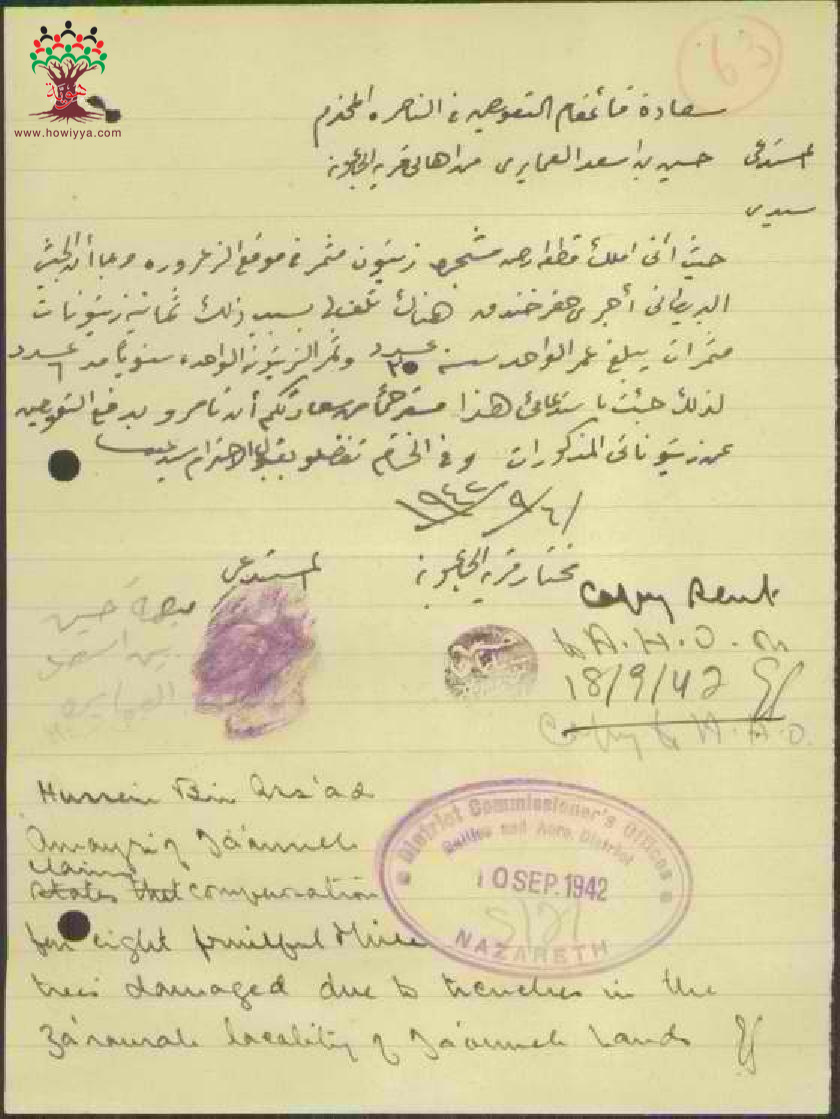 هوية
www.howiyya.com
63
سعادة قائمقام التعويض في الناصره المحترم
المستدعي حسين بن اسعد العمايري من اهالي قرية الجاعونة
سيدي
حيث أنني املك قطعة ارض مشجره زيتون مثمر في موقع الزعروره وبما أن الجيش
البريطاني أجرى حفر خندق هناك تلف بسبب ذلك ثمانية زيتونات
مثمرات يبلغ عمر الواحد سنة عدد ٣٥ وثمر الزيتونة الواحده سنويا مد عدد ٦
لذلك جئت باستدعائي هذا مسترحماً من سعادتكم أن تامرو بدفع التعويض
عن زيتوناتي المذكورات وفي الختام تفضلو بقبول الاحترام سيدي
٦/٩/١٩٤٢
المستدعي مختار قرية الجاعونة
بصمة حسين
بن اسعد
العمايري
Copy sent
to A.H.O. on
18/9/42
Copy to H.A.O.
Hussein Bin Ass'ad
Amayri of Ja'auneh
claims
states that compensation
for eight fruitful olive
trees damaged due to trenches in the
Za'rourah locality of Ja'auneh lands
District Commissioner's Offices
Galilee and Acre District
10 SEP. 1942
NAZARETH